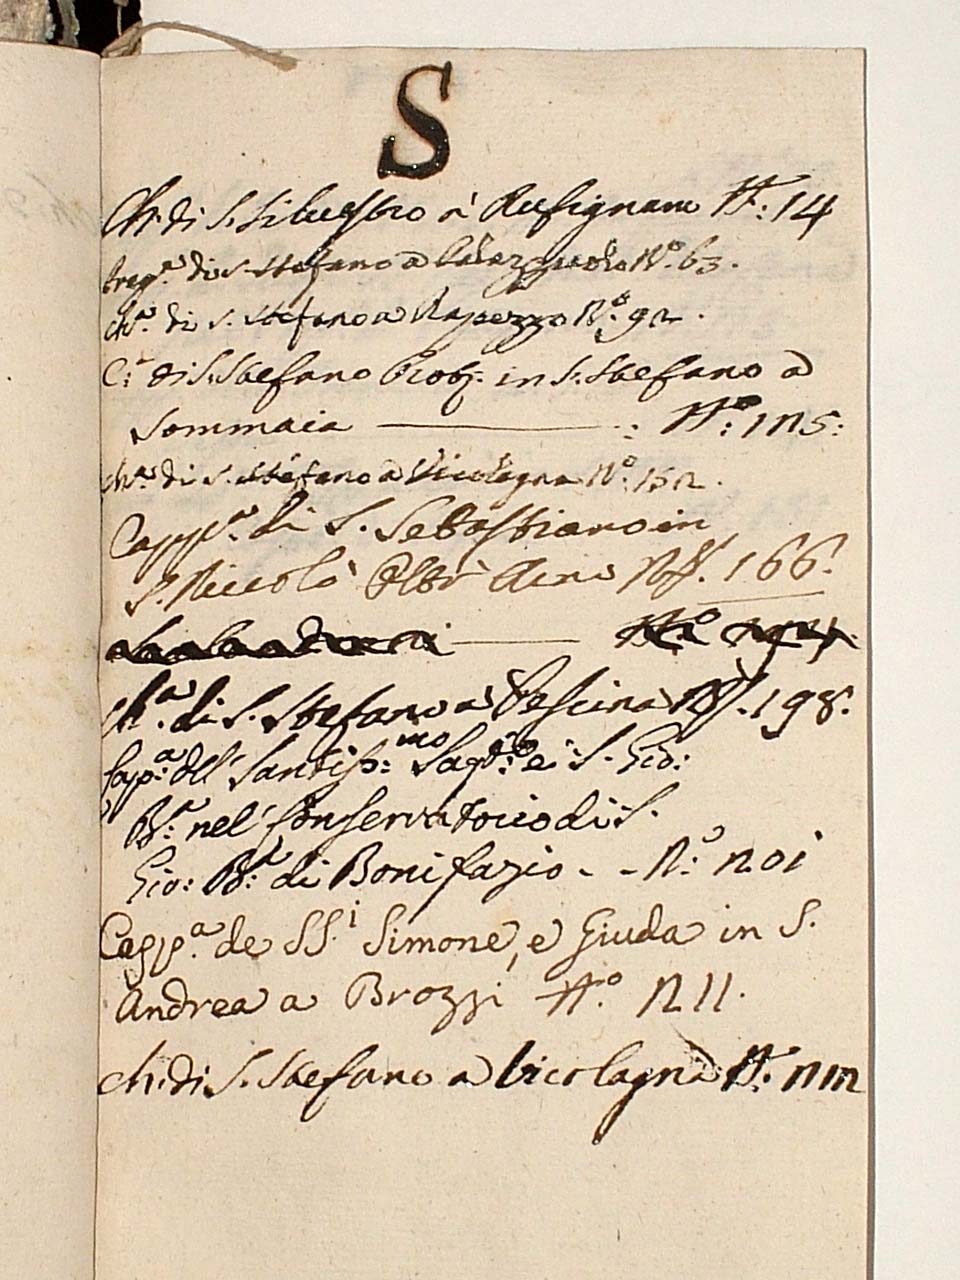 S
Ch: di S. Silvestro a' Rufignano N: 14
di S. Stefano a N.o 63.
Ch.a di S. Stefano a Rapezzo N.o 92.
C.a di S. Stefano Prot: in S. Stefano a
Sommaia N.o: 125:
Ch.a di S. Stefano a Vicolagna N.o 152.
Capp.a di S. Sebastiano in
S. Niccolò Oltr' Arno N.o 166.
Ch.a di S. Stefano a Pescina N.o 198.
Capp.a dell' Santiss:mo Sag.to e S. Gio:
B.a nel Conservatorio di S.
Gio: B:a di Bonifazio - - N.o 201
Capp.a de SS.i Simone, e Giuda in S.
Andrea a Brozzi N.o 211.
Ch: di S. Stefano a Vicolagna N.o 212